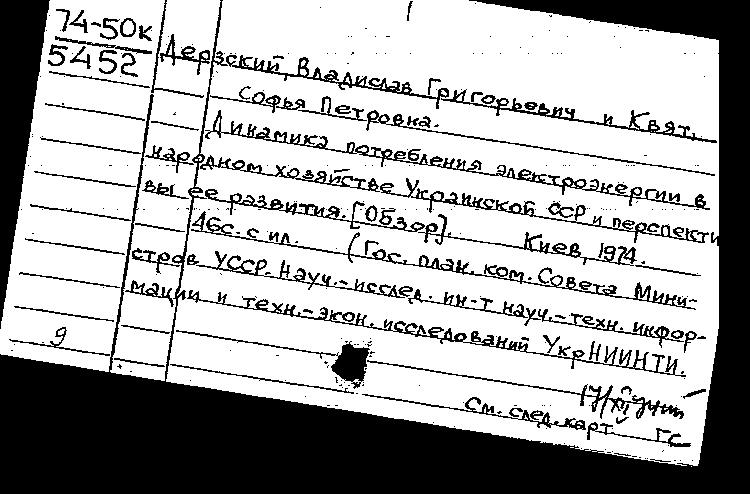 74-50к
5452
Дерзский, Владислав Григорьевич и Квят,
Софья Петровна.
Динамика потребления электроэнергии в
народном хозяйстве Украинской ССР и перспекти
вы ее развития. [Обзор]. Киев, 1974.
46с. с ил. (Гос. план. ком. Совета Мини-
стров УССР. Науч.-исслед. ин-т науч.-техн. инфор-
мации и техн.-экон. исследований УкрНИИНТИ.
9
См. след. карт ГС